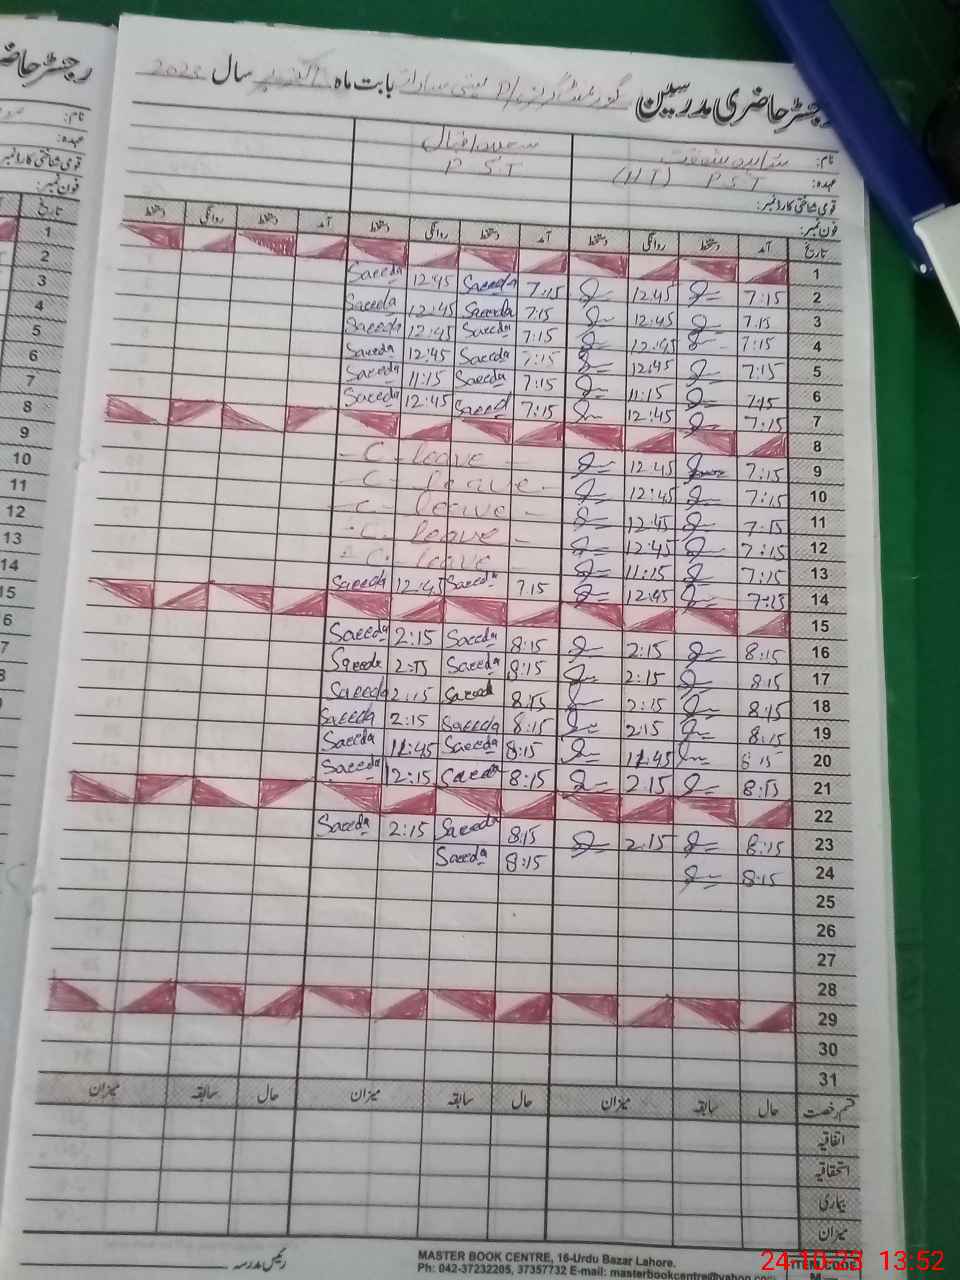 رجسٹر حاضری مدرسین گورنمنٹ گرلز بابت ماہ اکتوبر سال 2023
نام: سعیدہ اقبال
عہدہ: P.S.T (HT) P.S.T
قومی شناختی کارڈ نمبر:
فون نمبر:
تاریخ آمد دستخط روانگی دستخط آمد دستخط روانگی دستخط آمد دستخط روانگی دستخط
1
2 7:15 12:45 7:15 Saeeda 12:45 Saeeda
3 7:15 12:45 7:15 Saeeda 12:45 Saeeda
4 7:15 12:45 7:15 Saeeda 12:45 Saeeda
5 7:15 12:45 7:15 Saeeda 12:45 Saeeda
6 7:15 11:15 7:15 Saeeda 11:15 Saeeda
7 7:15 12:45 7:15 Saeed 12:45 Saeeda
8
9 7:15 12:45 C-leave
10 7:15 12:45 C-leave
11 7:15 12:45 C-leave
12 7:15 12:45 C-leave
13 7:15 11:15 C-leave
14 7:15 12:45 7:15 Saeeda 12:45 Saeeda
15
16 8:15 2:15 8:15 Saeeda 2:15 Saeeda
17 8:15 2:15 8:15 Saeeda 2:15 Saeeda
18 8:15 2:15 8:15 Saeed 2:15 Saeeda
19 8:15 2:15 8:15 Saeeda 2:15 Saeeda
20 8:15 11:45 8:15 Saeeda 11:45 Saeeda
21 8:15 2:15 8:15 Saeeda 12:15 Saeeda
22
23 8:15 2:15 8:15 Saeeda 2:15 Saeeda
24 8:15 8:15 Saeeda
25
26
27
28
29
30
31
قسم رخصت حال سابقہ میزان حال سابقہ میزان حال سابقہ میزان
اتفاقیہ
استحقاقیہ
بیماری
میزان
رئیس مدرسہ
MASTER BOOK CENTRE, 16-Urdu Bazar Lahore.
Ph: 042-37232205, 37357732 E-mail: masterbookcentre@yahoo.com
ITEM CODE
24-10-23 13:52